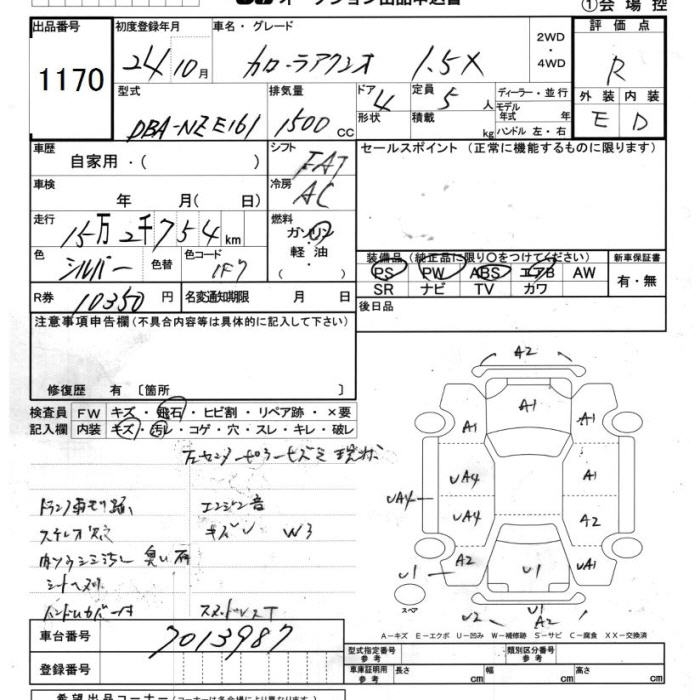 オークション出品申込書
①会場控
出品番号 初度登録年月 車名・グレード 2WD 評価点
1170 24 10月 カローラアクシオ 1.5X ・4WD R
型式 排気量 ドア 4 定員 5 人 ディーラー・並行 外装 内装
DBA-NZE161 1500 cc 形状 積載 kg モデル年式 年 ハンドル 左・右 E D
車歴 シフト セールスポイント (正常に機能するものに限ります)
自家用・( ) FAT
車検 冷房
年 月( 日) AC
走行 燃料
15万2千754km ガソリン
軽油
・( )
色 色替 色コード 装備品(純正品に限り○をつけてください) 新車保証書
シルバー 1F7 PS PW ABS エアB AW 有・無
SR ナビ TV カワ
R券 10350円 名変通知期限 月 日 後日品
注意事項申告欄(不具合内容等は具体的に記入して下さい)
修復歴 有 〔箇所 〕
検査員 FW キズ・飛石・ヒビ割・リペア跡・×要
記入欄 内装 キズ・汚レ・コゲ・穴・スレ・キレ・破レ
エンジン音
ステレオ欠
キズ W3
A2
A1
A1
A1
UA4
UA4
UA4
A2
A2
UA1
U1
U1
スペア
U2
U1
A2
A-キズ E-エクボ U-凹み W-補修跡 S-サビ C-腐食 XX-交換済
車台番号 7013987
登録番号
型式指定番号 参考 類別区分番号 参考
車庫証明用 参考 長さ cm 幅 cm 高さ cm
希望出品コーナー